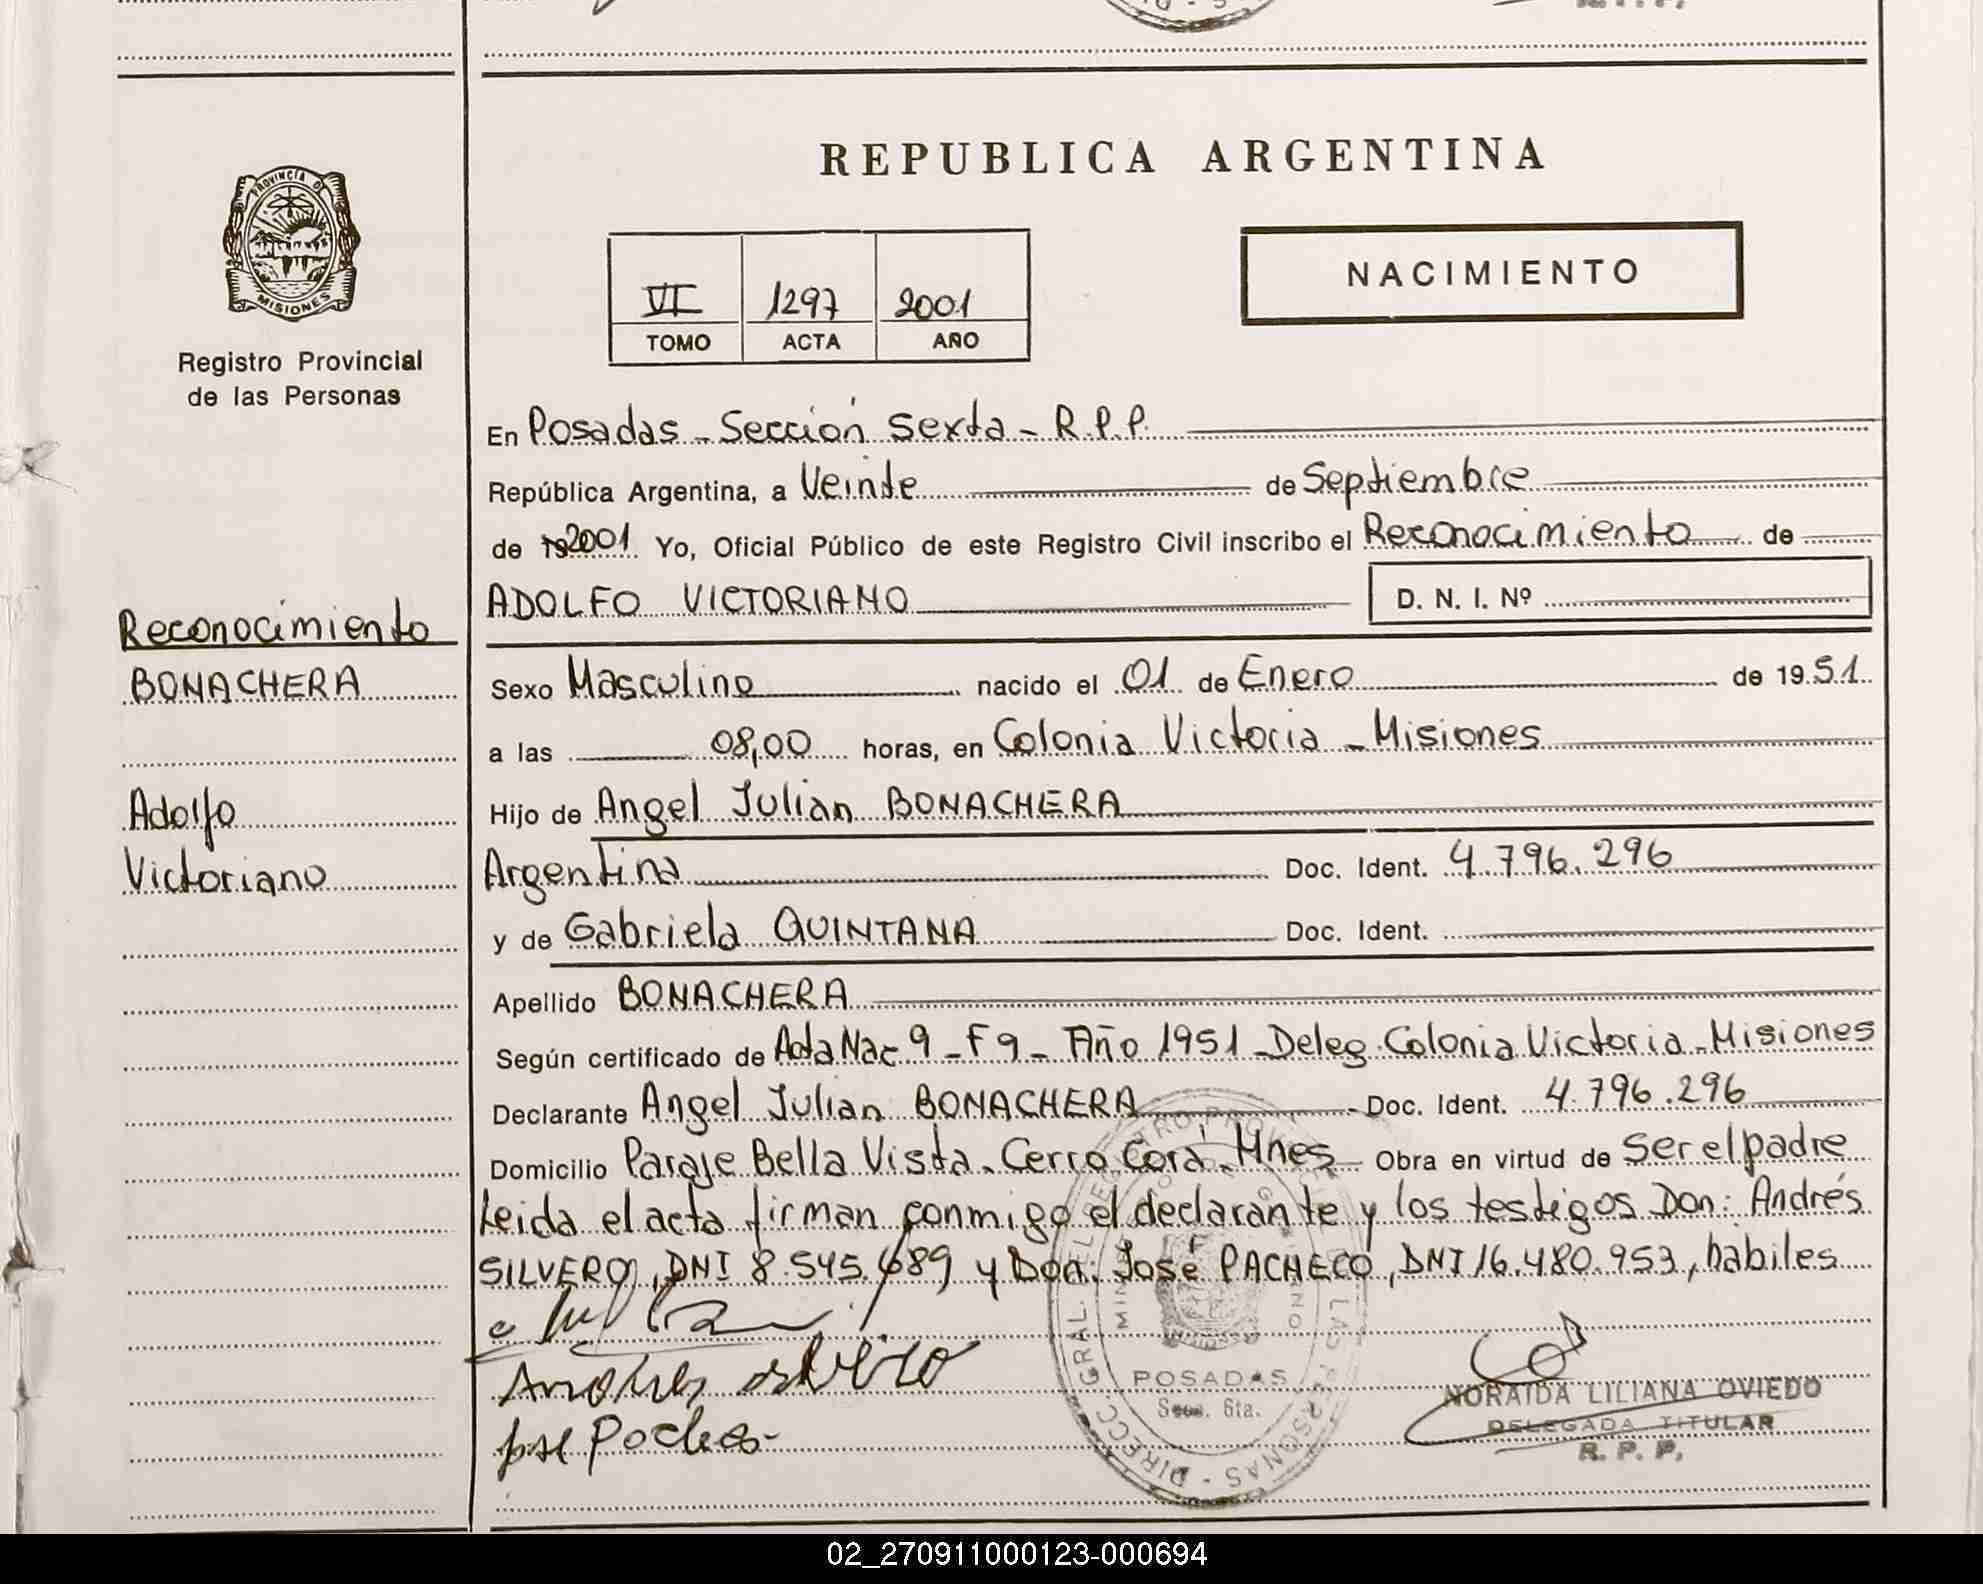 REPUBLICA ARGENTINA
PROVINCIA DE
MISIONES
Registro Provincial
de las Personas
NACIMIENTO
VI 1297 2001
TOMO ACTA AÑO
En Posadas - Sección Sexta - R.P.P.
República Argentina, a Veinte de Septiembre
de 192001 Yo, Oficial Público de este Registro Civil inscribo el Reconocimiento de
ADOLFO VICTORIANO D. N. I. Nº
Reconocimiento
BONACHERA
Adolfo
Victoriano
Sexo Masculino nacido el 01 de Enero de 1951
a las 08,00 horas, en Colonia Victoria - Misiones
Hijo de Angel Julian BONACHERA
Argentina Doc. Ident. 4.796.296
y de Gabriela QUINTANA Doc. Ident.
Apellido BONACHERA
Según certificado de Acta Nac 9 - F 9 - Año 1951 - Deleg. Colonia Victoria - Misiones
Declarante Angel Julian BONACHERA Doc. Ident. 4.796.296
Domicilio Paraje Bella Vista - Cerro Corá - Mnes Obra en virtud de Ser el padre
Leida el acta firman conmigo el declarante y los testigos Don: Andrés
SILVERO, DNI 8.545.689 y Don: José PACHECO, DNI 16.480.953, habiles
DIRECC. GRAL. DEL REGISTRO PROVINCIAL DE LAS PERSONAS
POSADAS
Secc. 6ta.
NORAIDA LILIANA OVIEDO
DELEGADA TITULAR
R. P. P.
02_270911000123-000694